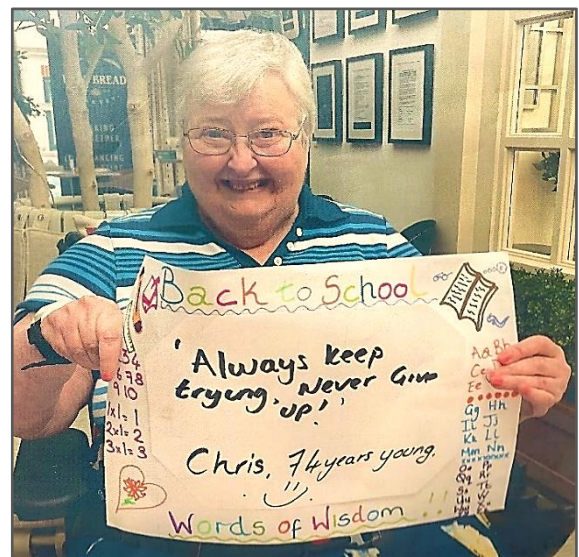 BREAD
Back to School
'Always keep
tryung, Never Give
up!'
Chris, 74 years young.
Words of Wisdom !!
34
678
9 10
1x1=1
2x1=2
3x1=3
Aa Bb
Cc
Ee
Gg Hh
Ii Jj
Kk Ll
Mm Nn